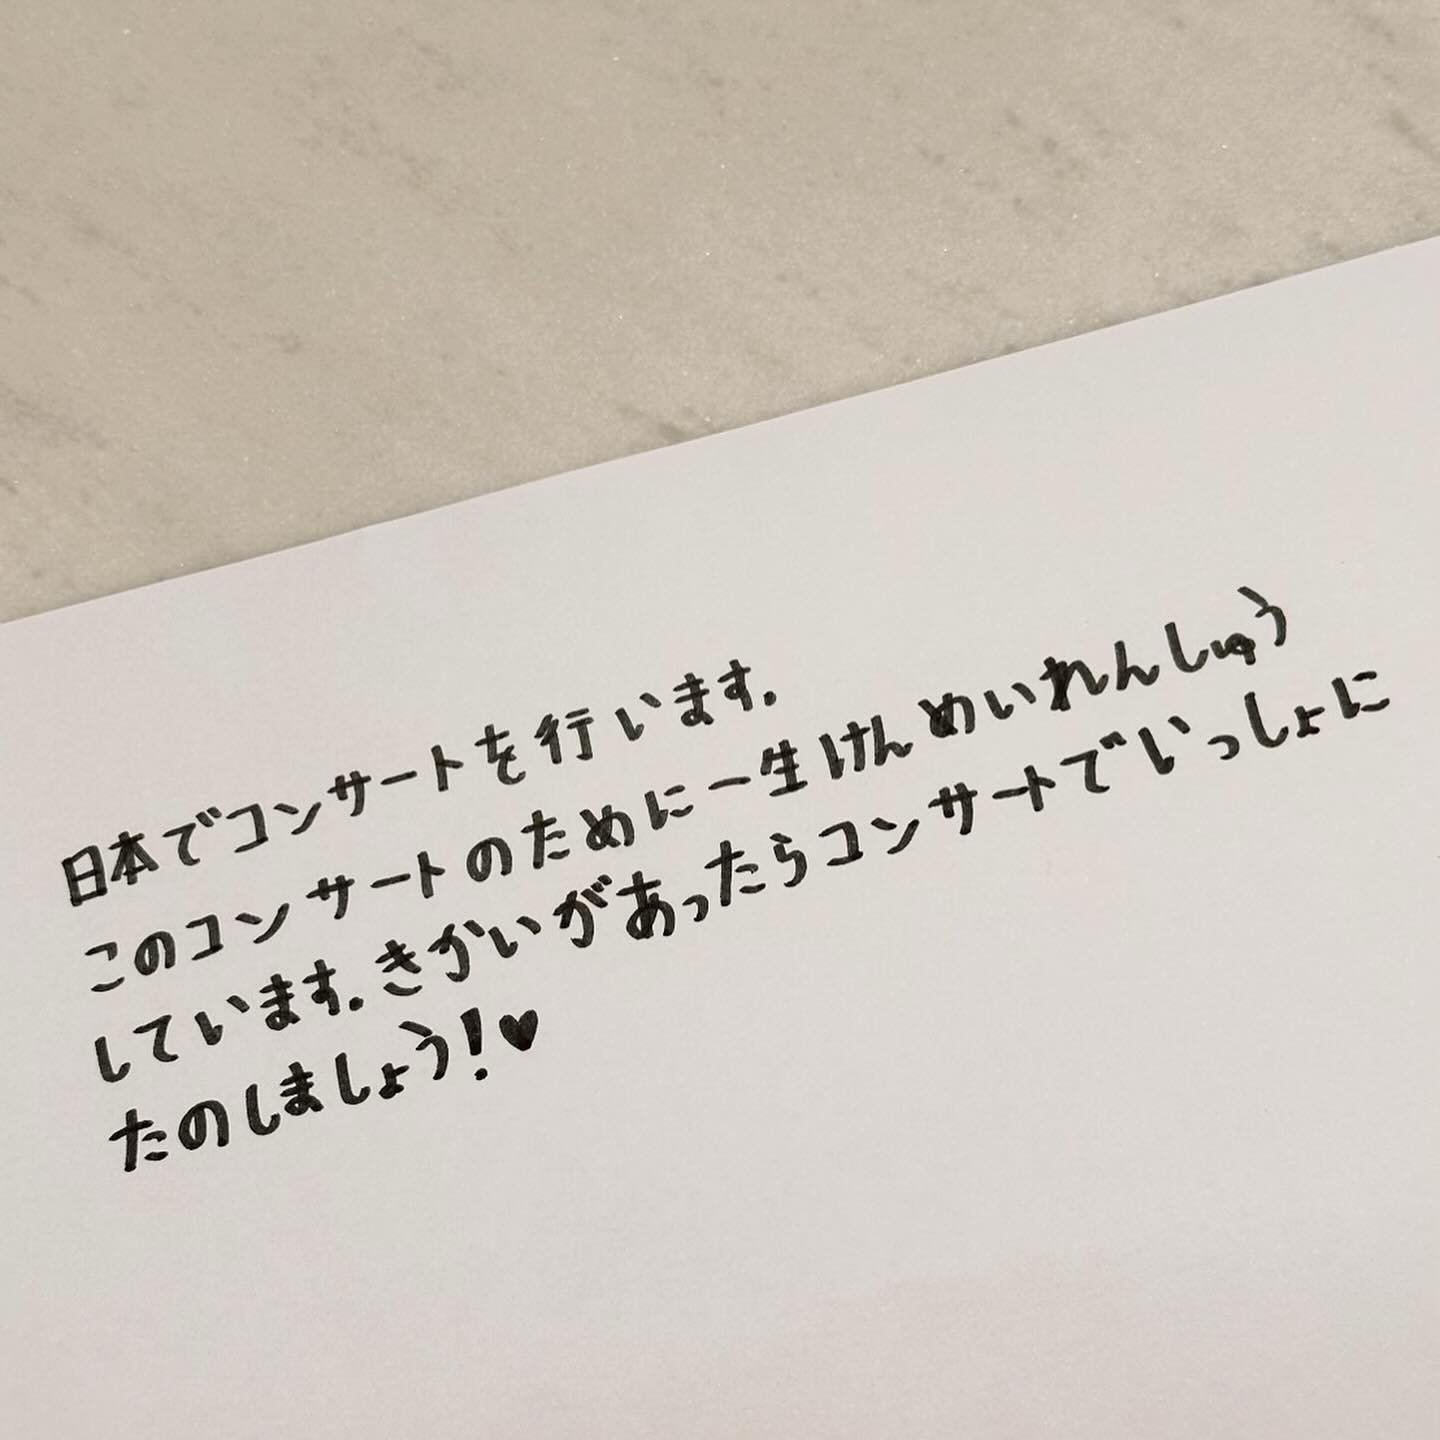 日本でコンサートを行います.
このコンサートのために一生けんめいれんしゅう
しています.きかいがあったらコンサートでいっしょに
たのしましょう!♥